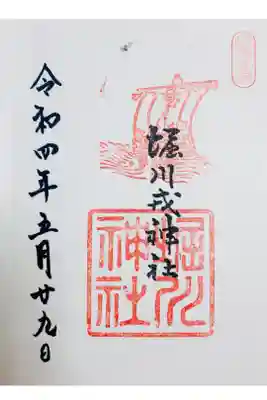 堀川戎神社
堀川神社
令和四年五月廿九日